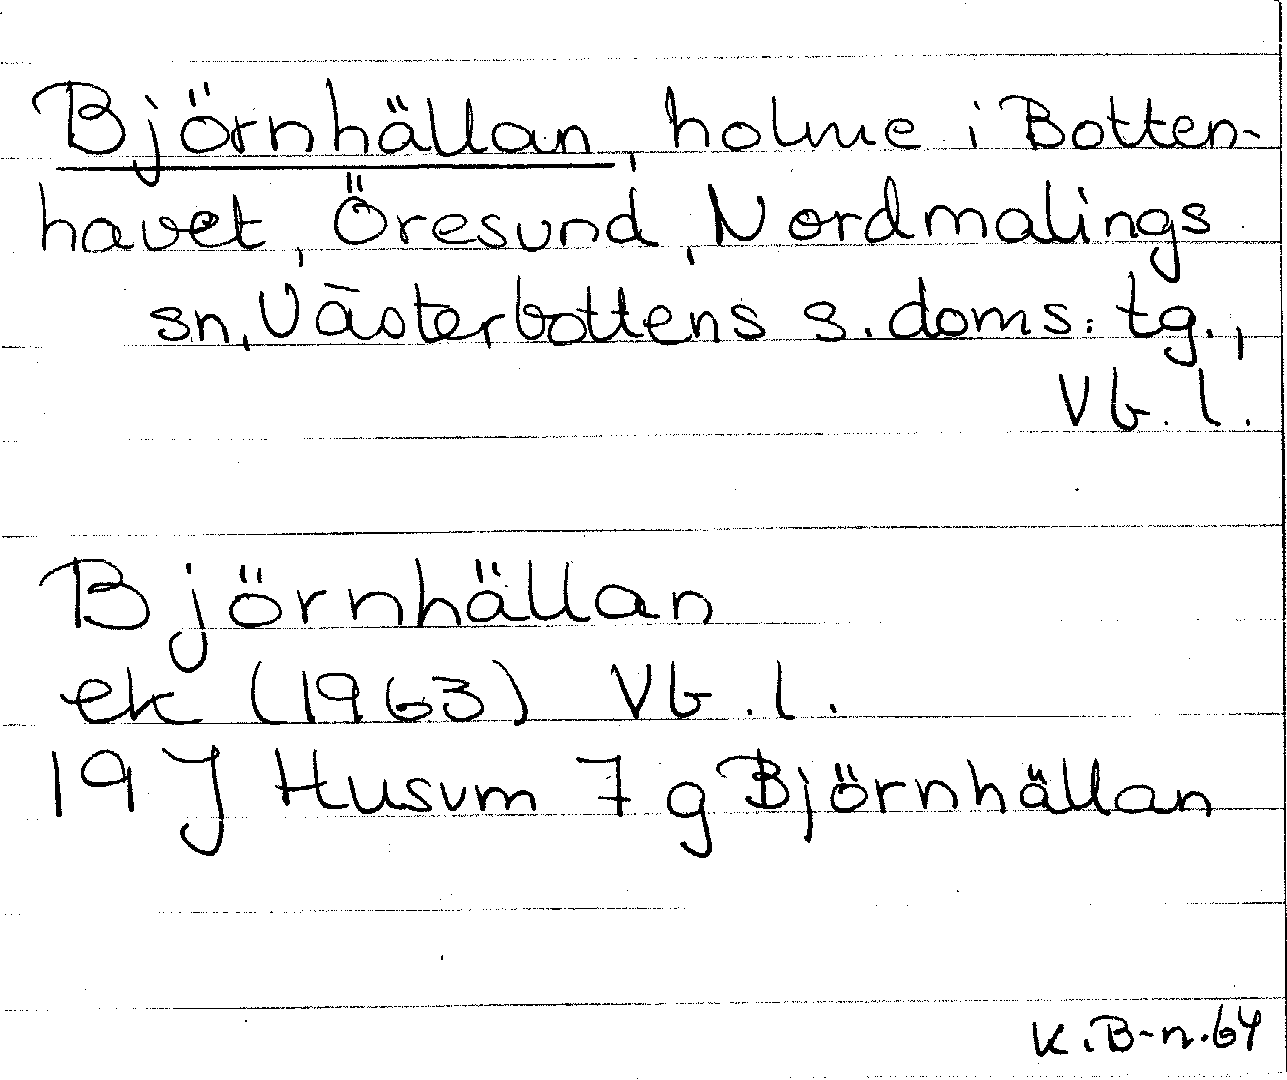 Björnhällan, holme i Botten-
havet, Öresund, Nordmalings
sn, Västerbottens s. doms. tg.,
Vb. l.
Björnhällan
ek (1963) Vb. l.
19 J Husum 7 g Björnhällan
K. B-n. 64